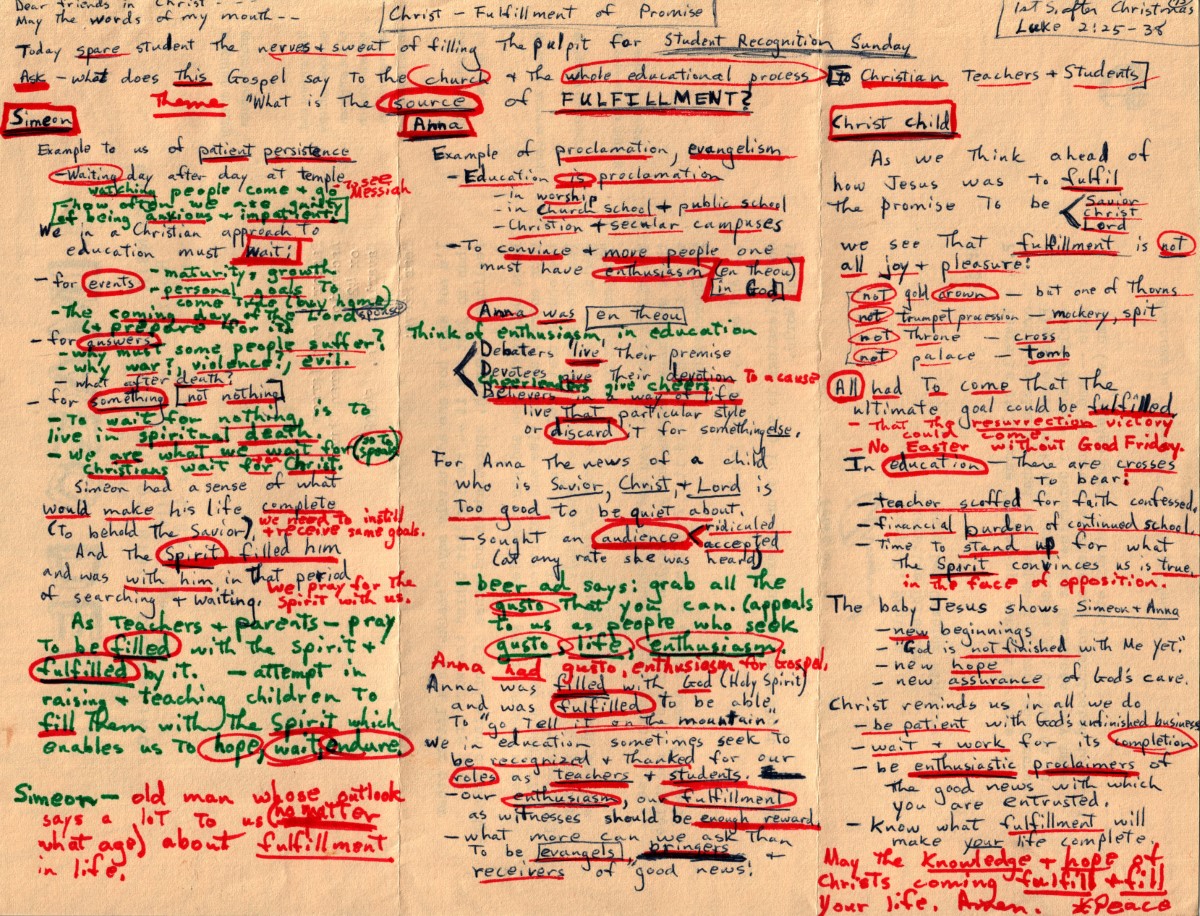 Dear friends in Christ - - - -
May the words of my mouth - -
Christ - Fulfillment of Promise
1st S. after Christmas
Luke 2:25-38
Today spare student the nerves + sweat of filling the pulpit for Student Recognition Sunday
Ask - what does this Gospel say to the church + the whole educational process [to Christian Teachers + Students]
Theme "What is the source of FULFILLMENT?
Simeon
Example to us of patient persistence
- Waiting day after day at temple to see Messiah
watching people come + go
- how often we are guilty
of being anxious + impatient!
We in a Christian approach to
education must Wait!
- for events - maturity, growth
- personal goals to
come true (buy home) spouse
- The coming day of the Lord
(+ prepare for it)
- for answers
- why must some people suffer?
- why war?, violence?, evil.
- what after death?
- for something [not nothing]
- To wait for nothing is to
live in spiritual death
- We are what we wait for (so to speak)
Christians wait for Christ.
Simeon had a sense of what
would make his life complete
(To behold the Savior), we need to instill
+ receive same goals.
And the Spirit filled him
and was with him in that period
of searching + waiting. We pray for the
Spirit with us.
As Teachers + parents - pray
To be filled with the Spirit +
fulfilled by it. - attempt in
raising + teaching children to
fill them with the Spirit which
enables us to hope, wait, endure.
Simeon - old man whose outlook
says a lot to us (no matter
what age) about fulfillment
in life.
Anna
Example of proclamation, evangelism
- Education is proclamation
- in worship
- in church school + public school
- Christian + secular campuses
- To convince + more people one
must have enthusiasm (en theou)
in God
Anna was [en theou]
Think of enthusiasm, in education
Debaters live their premise
Devotees give their devotion to a cause
cheerleaders give cheers
Believers in a way of life
live that particular style
or discard it for something else.
For Anna the news of a child
who is Savior, Christ, + Lord is
Too good to be quiet about.
- sought an audience < ridiculed
accepted
(at any rate she was heard)
- beer ad says: grab all the
gusto that you can. (appeals
to us as people who seek
gusto life enthusiasm.
Anna had gusto, enthusiasm for Gospel.
Anna was filled with God (Holy Spirit)
and was fulfilled to be able
To "go tell it on the mountain".
We in education sometimes seek to
be recognized + thanked for our
roles as teachers + students.
- our enthusiasm, our fulfillment
as witnesses should be enough reward
- what more can we ask than
To be [evangels" bringers +
receivers of good news!
Christ child
As we think ahead of
how Jesus was to fulfil
the promise to be < Savior
Christ
Lord
we see that fulfillment is not
all joy + pleasure!
not gold crown - but one of thorns
not trumpet procession - mockery, spit
not Throne - cross
not palace - tomb
All had to come that the
ultimate goal could be fulfilled
- that the resurrection victory
could come
- No Easter without Good Friday.
In education - there are crosses
to bear!
- teacher scoffed for faith confessed,
- financial burden of continued school,
- Time to stand up for what
the Spirit convinces us is true,
in the face of opposition.
The baby Jesus shows Simeon + Anna
- new beginnings
- "God is not finished with Me Yet".
- new hope
- new assurance of God's care.
Christ reminds us in all we do
- be patient with God's unfinished business
- wait + work for its completion
- be enthusiastic proclaimers of
the good news with which
you are entrusted.
- Know what fulfillment will
make your life complete.
May the knowledge + hope of
Christs coming fulfill + fill
your life. Amen. *Peace